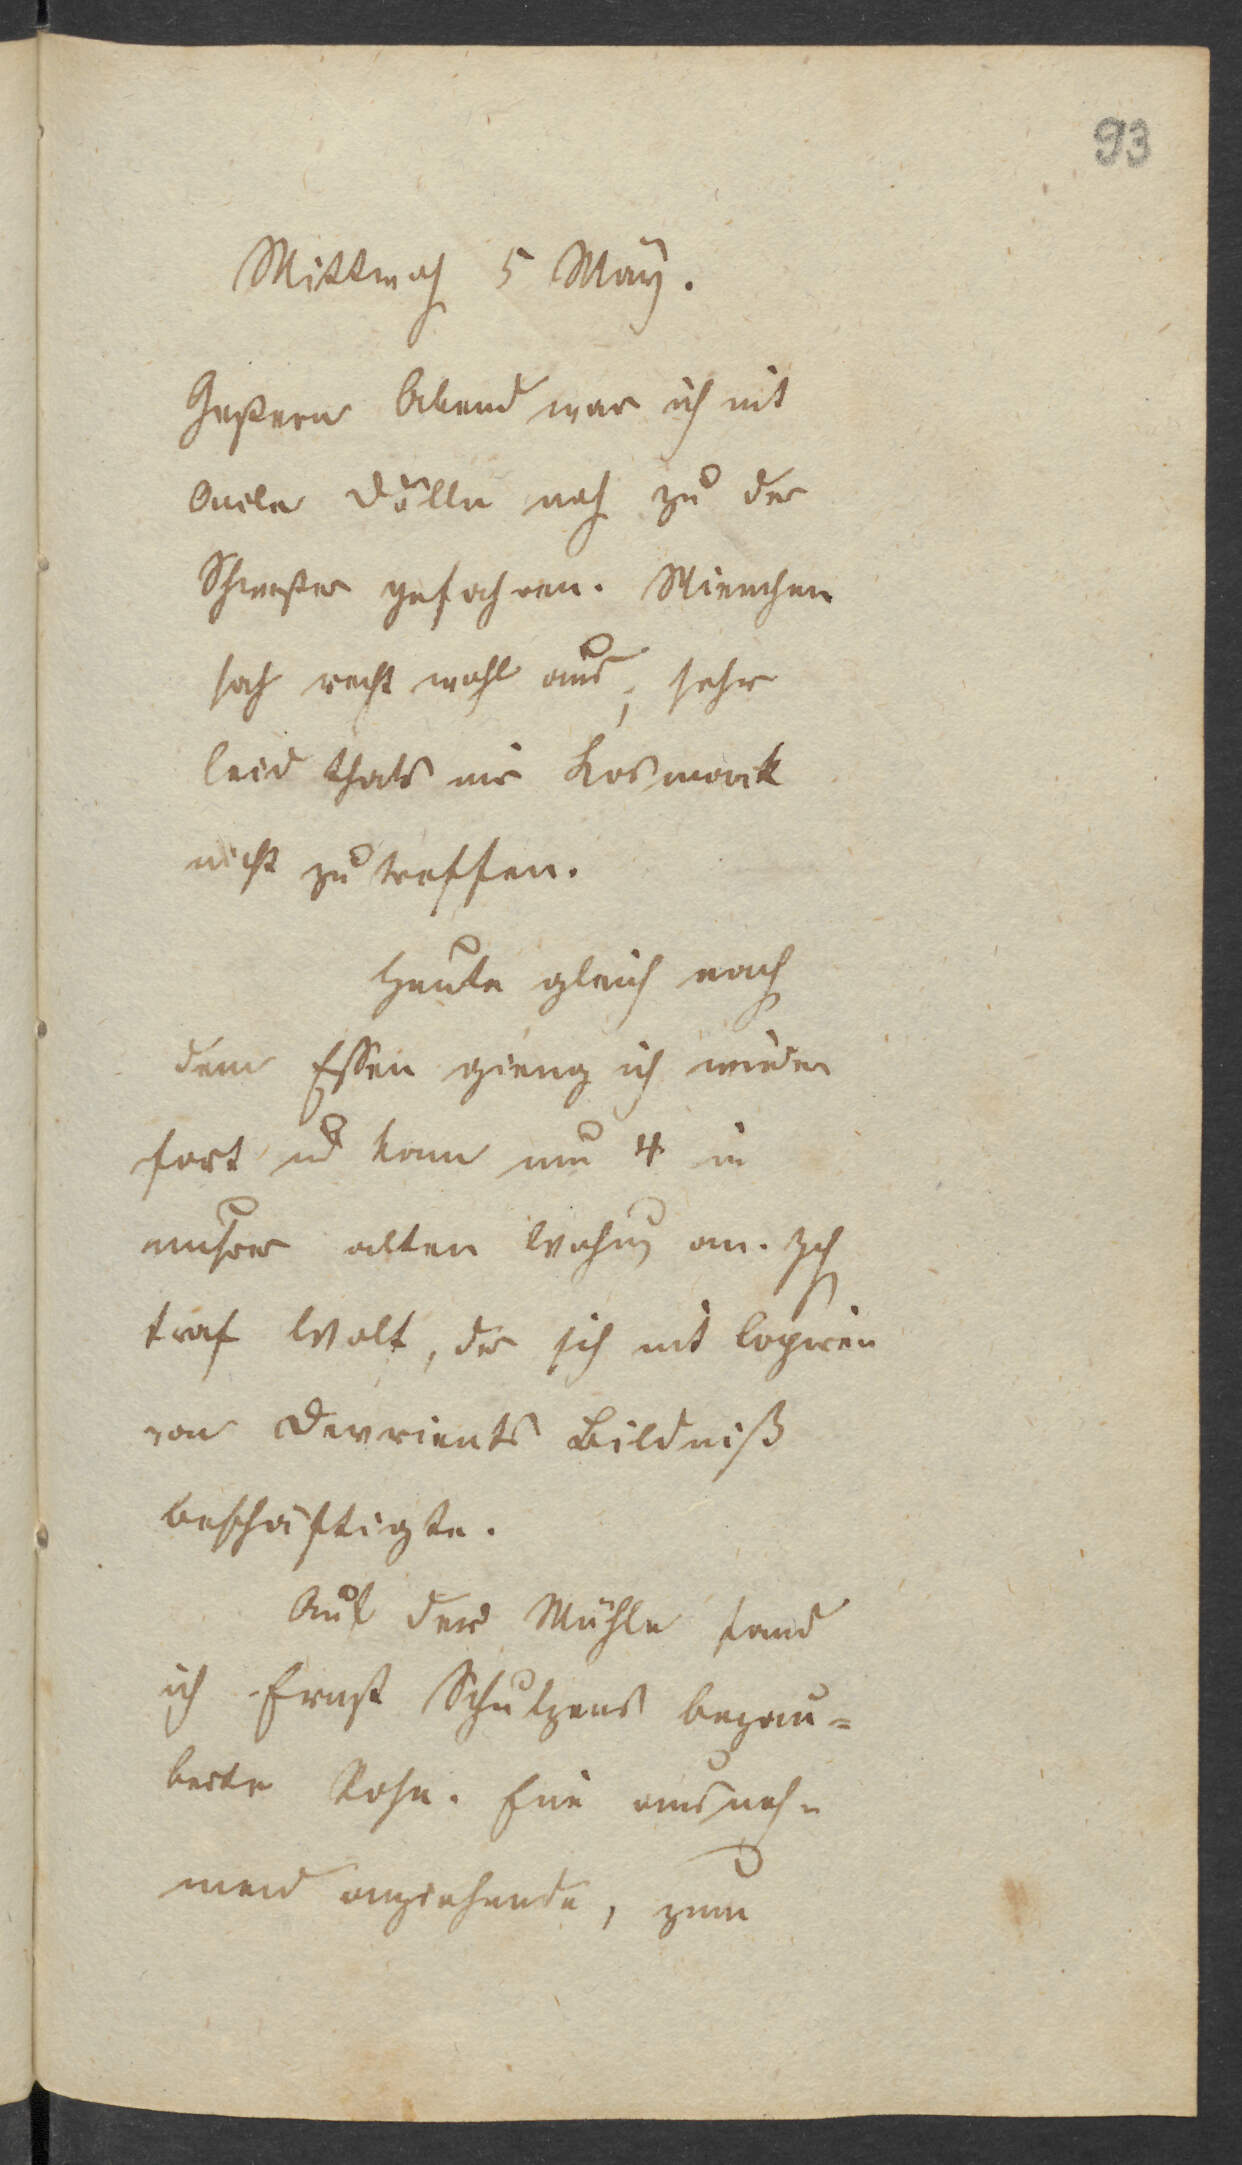 93
Mittwoch 5 May.
Gestern Abend war ich mit
Onkel Dölle noch zu der
Schwester gefahren. Mienchen
sah recht wohl aus; sehr
leid thats mir Kosmack
nicht zu treffen.
Heute gleich nach
dem Essen gieng ich wieder
fort und kam um 4 in
unsrer alten Wohnung an. Ich
traf Wolf, der sich mit Copiren
von Devrients Bildniß
beschäftigte.
Auf der Mühle fand
ich Ernst Schulzens bezau=
berte Rose. Eine ausneh=
mend anziehende, zum